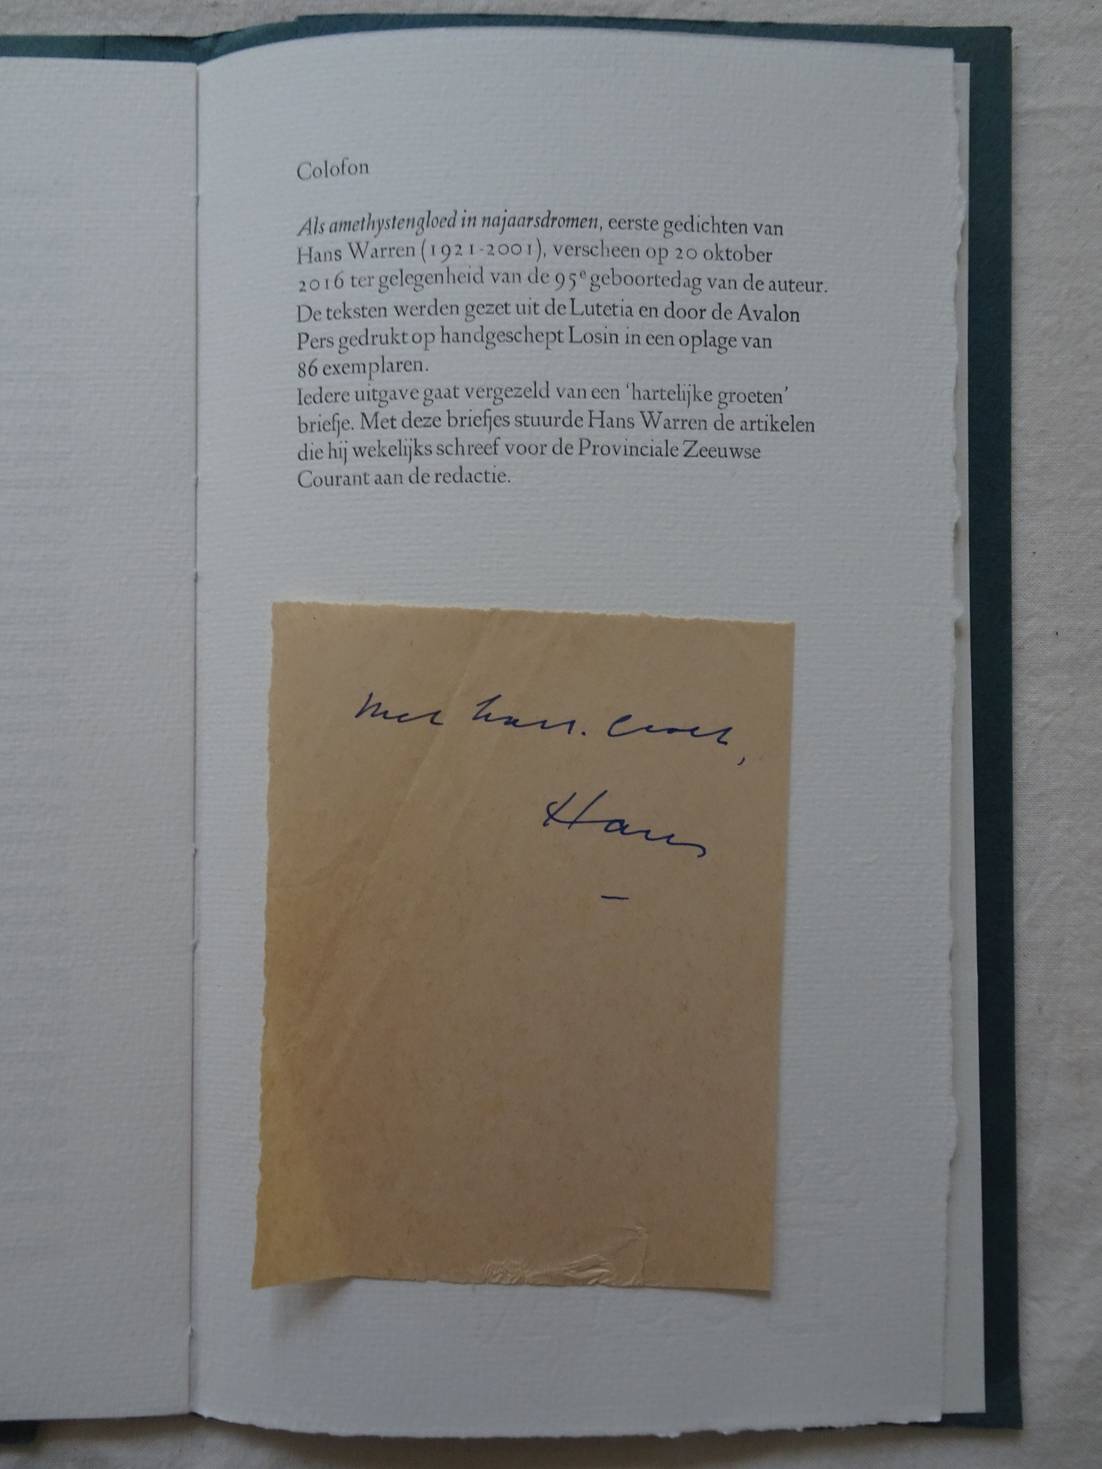 Colofon
Als amethystengloed in najaarsdromen, eerste gedichten van
Hans Warren (1921-2001), verscheen op 20 oktober
2016 ter gelegenheid van de 95e geboortedag van de auteur.
De teksten werden gezet uit de Lutetia en door de Avalon
Pers gedrukt op handgeschept Losin in een oplage van
86 exemplaren.
Iedere uitgave gaat vergezeld van een ‘hartelijke groeten’
briefje. Met deze briefjes stuurde Hans Warren de artikelen
die hij wekelijks schreef voor de Provinciale Zeeuwse
Courant aan de redactie.
Met hart. Groet,
Hans